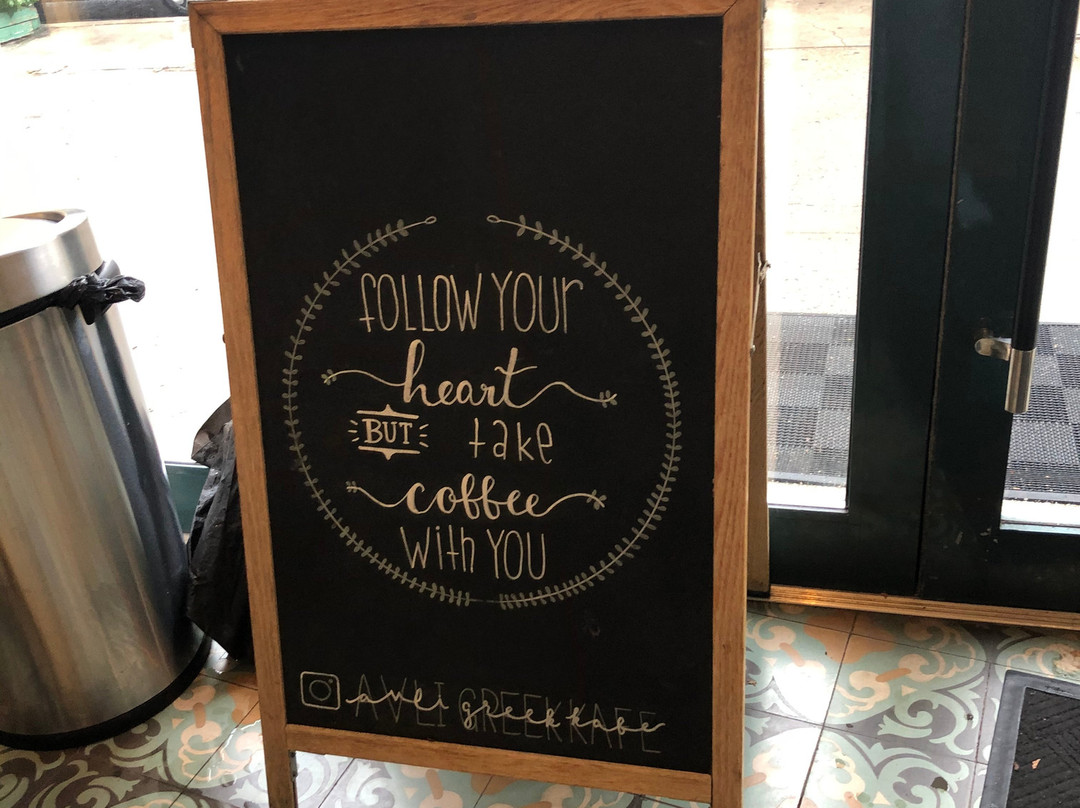 FOLLOW YOUR
heart
BUT take
coffee
with YOU
avli greekkafe
AVLI GREEKKAFE